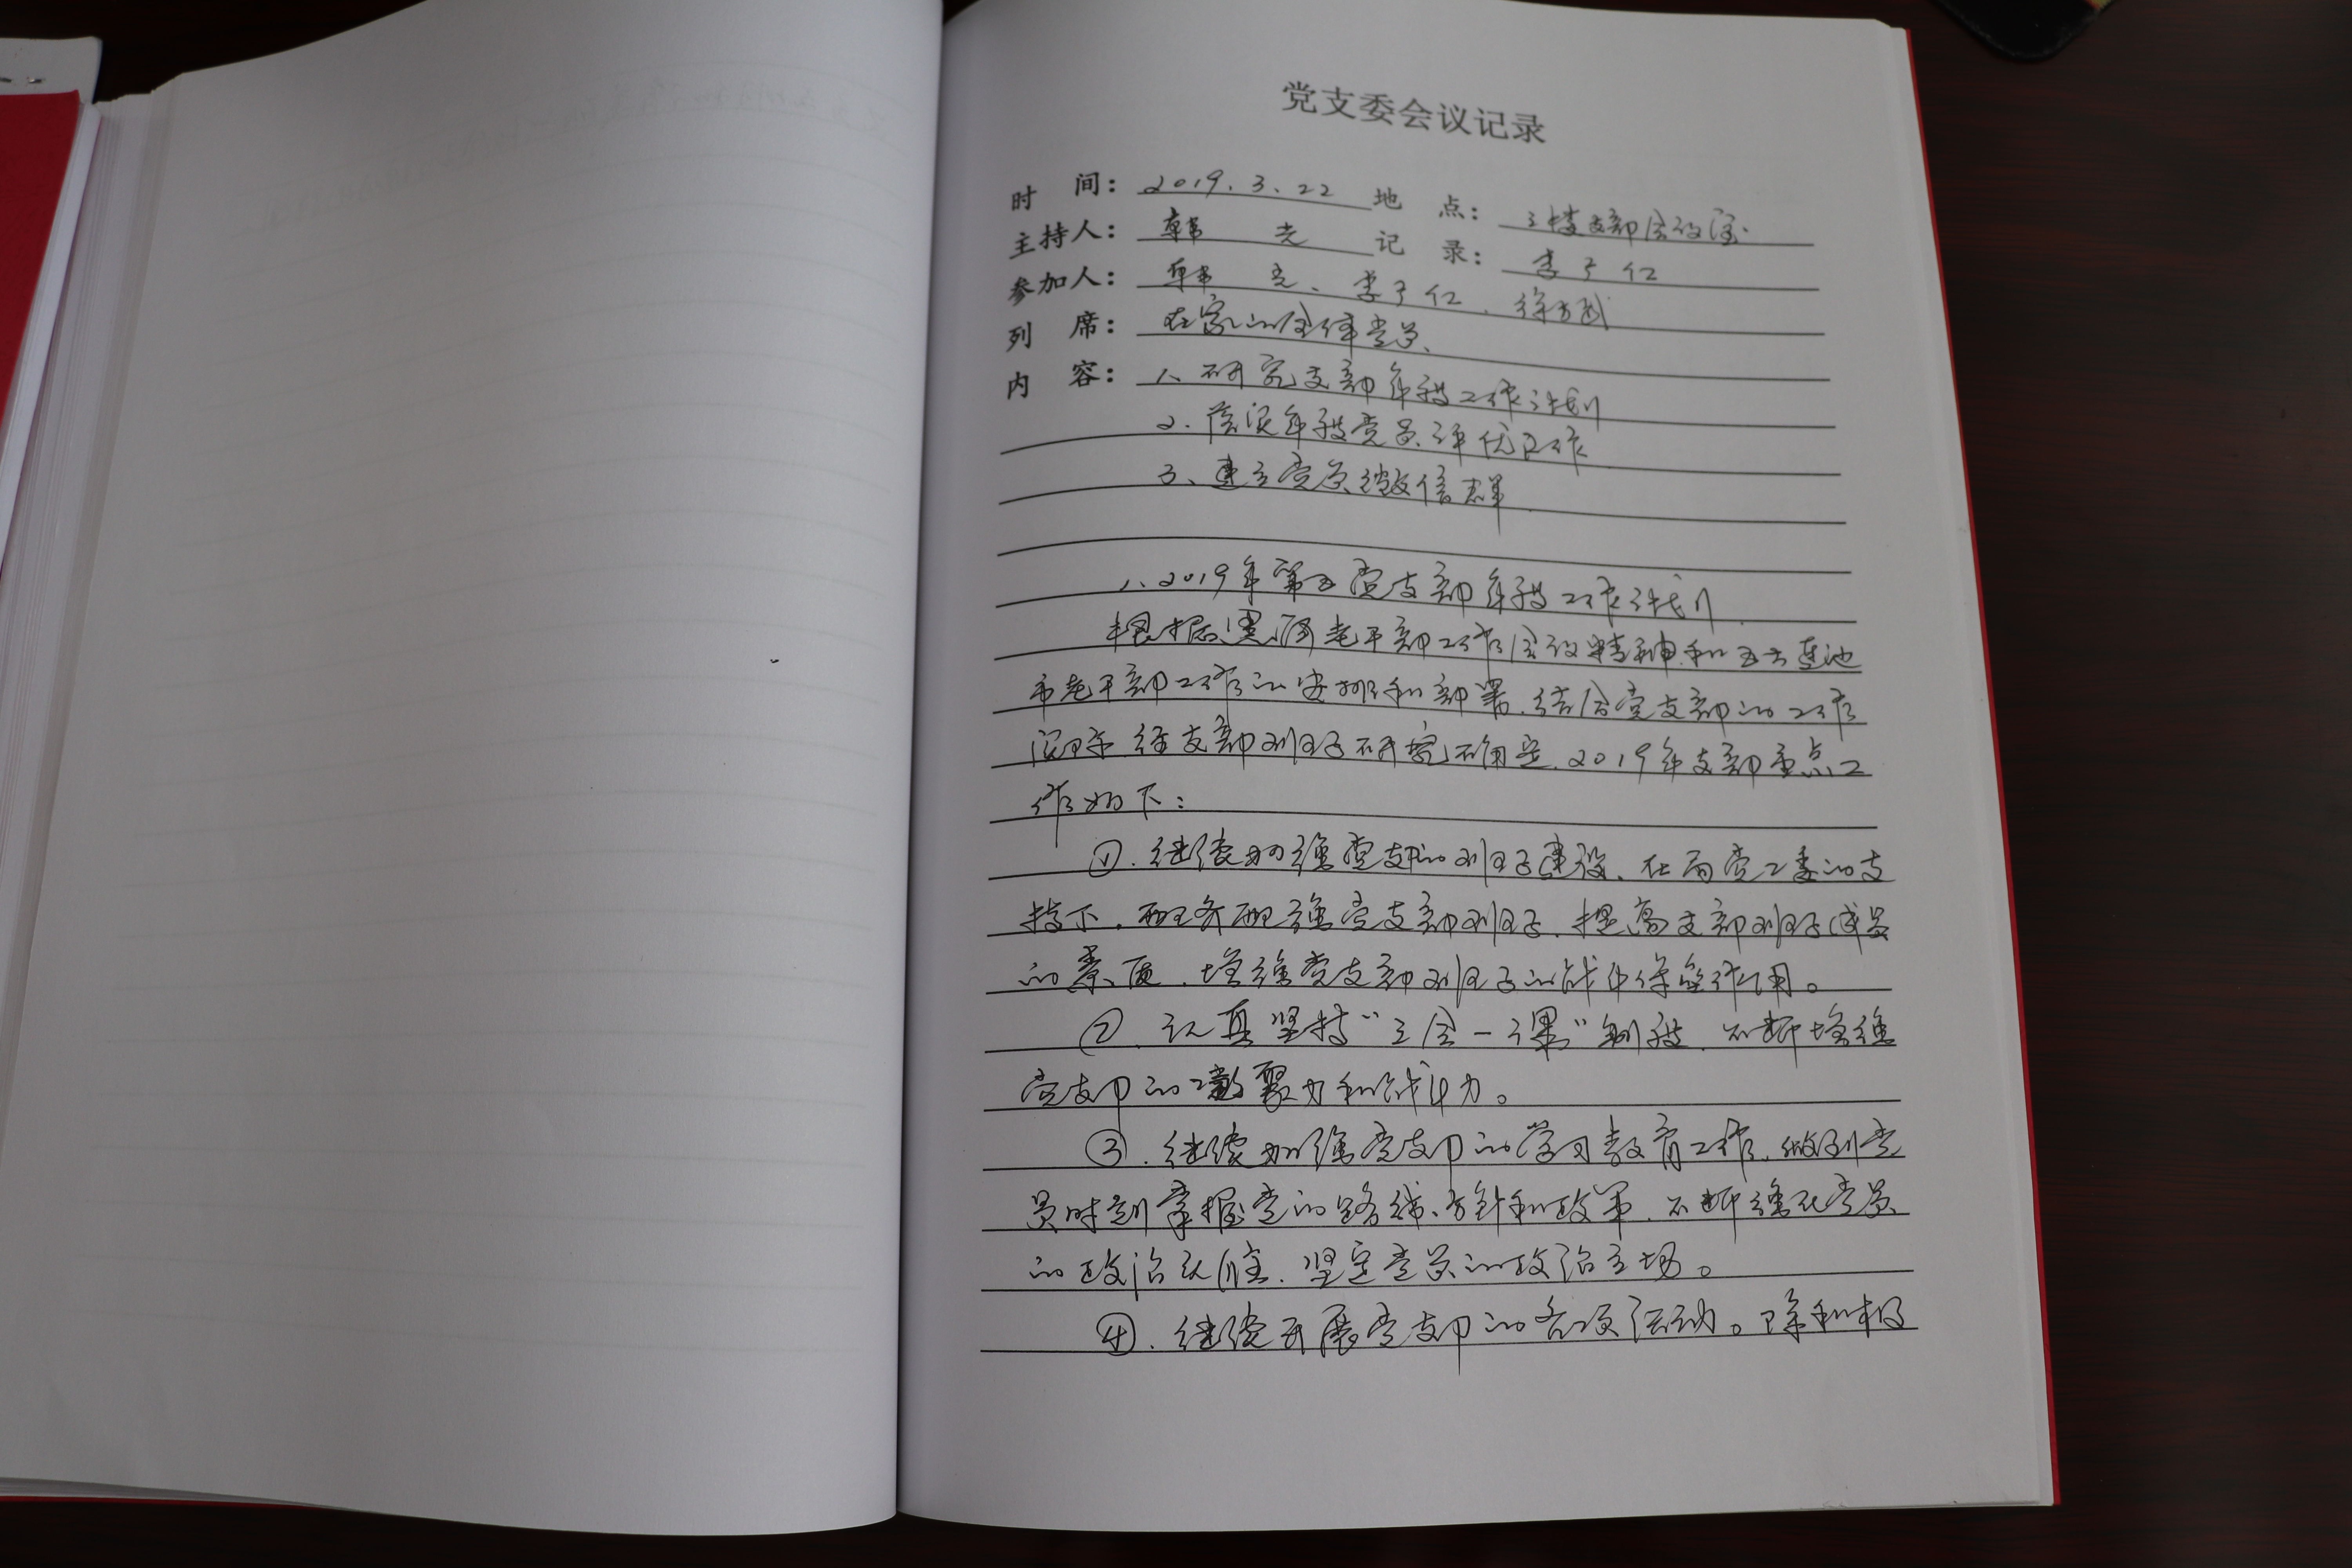 党支委会议记录
时 间： 2019.3.22 地 点： 三楼支部会议室
主持人： 韩 记 录： 李子仁
参加人： 韩 、李子仁、徐方武
列 席： 在家的全体党员、
内 容： 1、研究支部年度工作计划
2、落实年度党员评优工作
3、建立党员微信群
1、2019年第五党支部年度工作计划
根据黑河老干部工作会议精神和五大连池
市老干部工作的安排和部署、结合党支部的工作
实际 经支部班子研究确定、2019年支部重点工
作如下：
①、继续加强党支部的班子建设、在局党工委的支
持下、配齐配强党支部班子、提高支部班子成员
的素质、增强党支部班子的战斗堡垒作用。
②、认真坚持“三会一课”制度、不断增强
党支部的凝聚力和战斗力。
③、继续加强党支部的学习教育工作、做到党
员时刻掌握党的路线、方针和政策、不断强化党员
的政治、坚定党员的政治立场。
④、继续开展党支部的各项活动。除积极